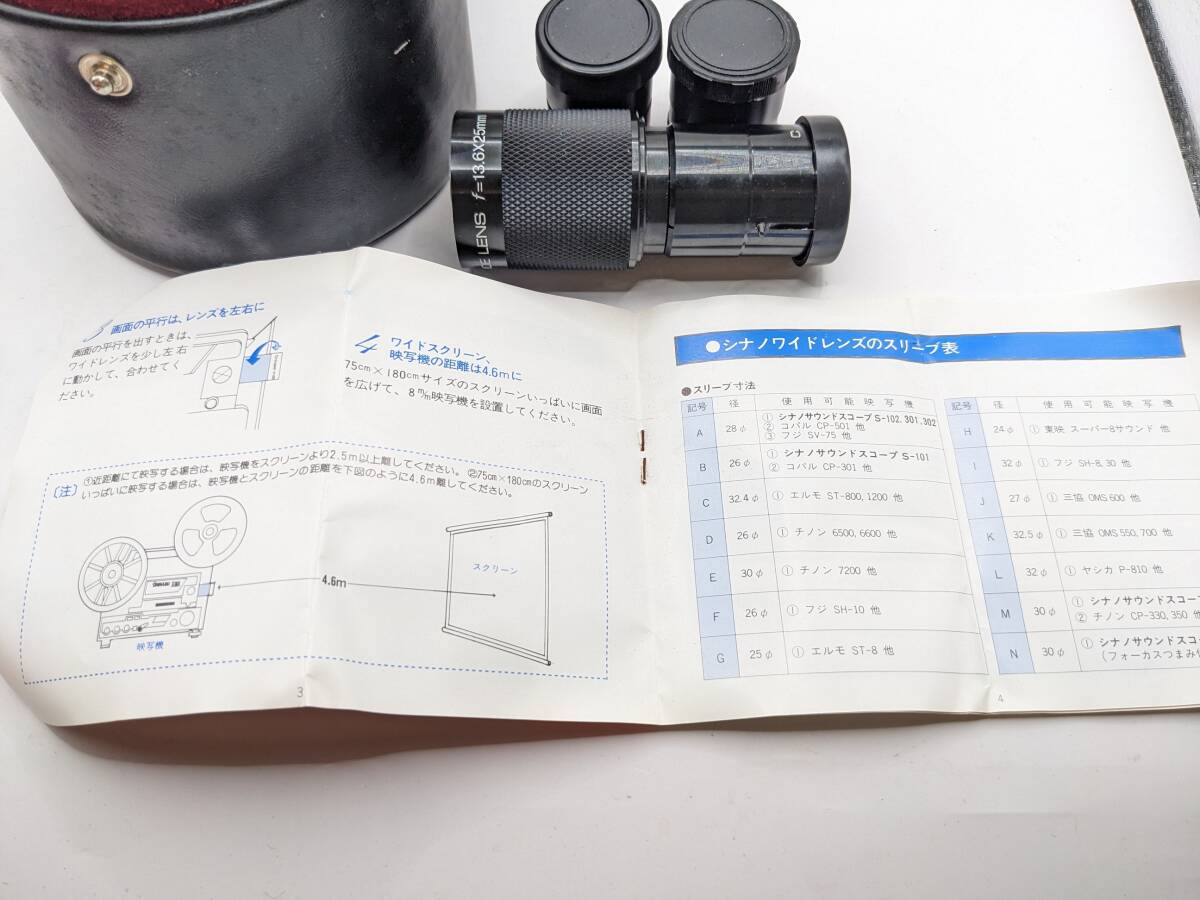 DE LENS f=13.6X25mm
C
3 画面の平行は、レンズを左右に
画面の平行を出すときは、
ワイドレンズを少し左右
に動かして、合わせてく
ださい。
4 ワイドスクリーン、
映写機の距離は4.6mに
75cm×180cmサイズのスクリーンいっぱいに画面
を広げて、8m/m映写機を設置してください。
(注) ①近距離にて映写する場合は、映写機をスクリーンより2.5m以上離してください。②75cm×180cmのスクリーン
いっぱいに映写する場合は、映写機とスクリーンの距離を下図のように4.6m離してください。
スクリーン
4.6m
映写機
3
●シナノワイドレンズのスリーブ表
●スリーブ寸法
記号 径 使用可能映写機
A 28φ ① シナノサウンドスコープ S-102.301.302
② コパル CP-501 他
③ フジ SV-75 他
B 26φ ① シナノサウンドスコープ S-101
② コパル CP-301 他
C 32.4φ ① エルモ ST-800, 1200 他
D 26φ ① チノン 6500, 6600 他
E 30φ ① チノン 7200 他
F 26φ ① フジ SH-10 他
G 25φ ① エルモ ST-8 他
記号 径 使用可能映写機
H 24φ ① 東映 スーパー8サウンド 他
I 32φ ① フジ SH-8, 30 他
J 27φ ① 三協 OMS 600 他
K 32.5φ ① 三協 OMS 550, 700 他
L 32φ ① ヤシカ P-810 他
M 30φ ① シナノサウンドスコープ
② チノン CP-330, 350 他
N 30φ ① シナノサウンドスコ
(フォーカスつまみ
4